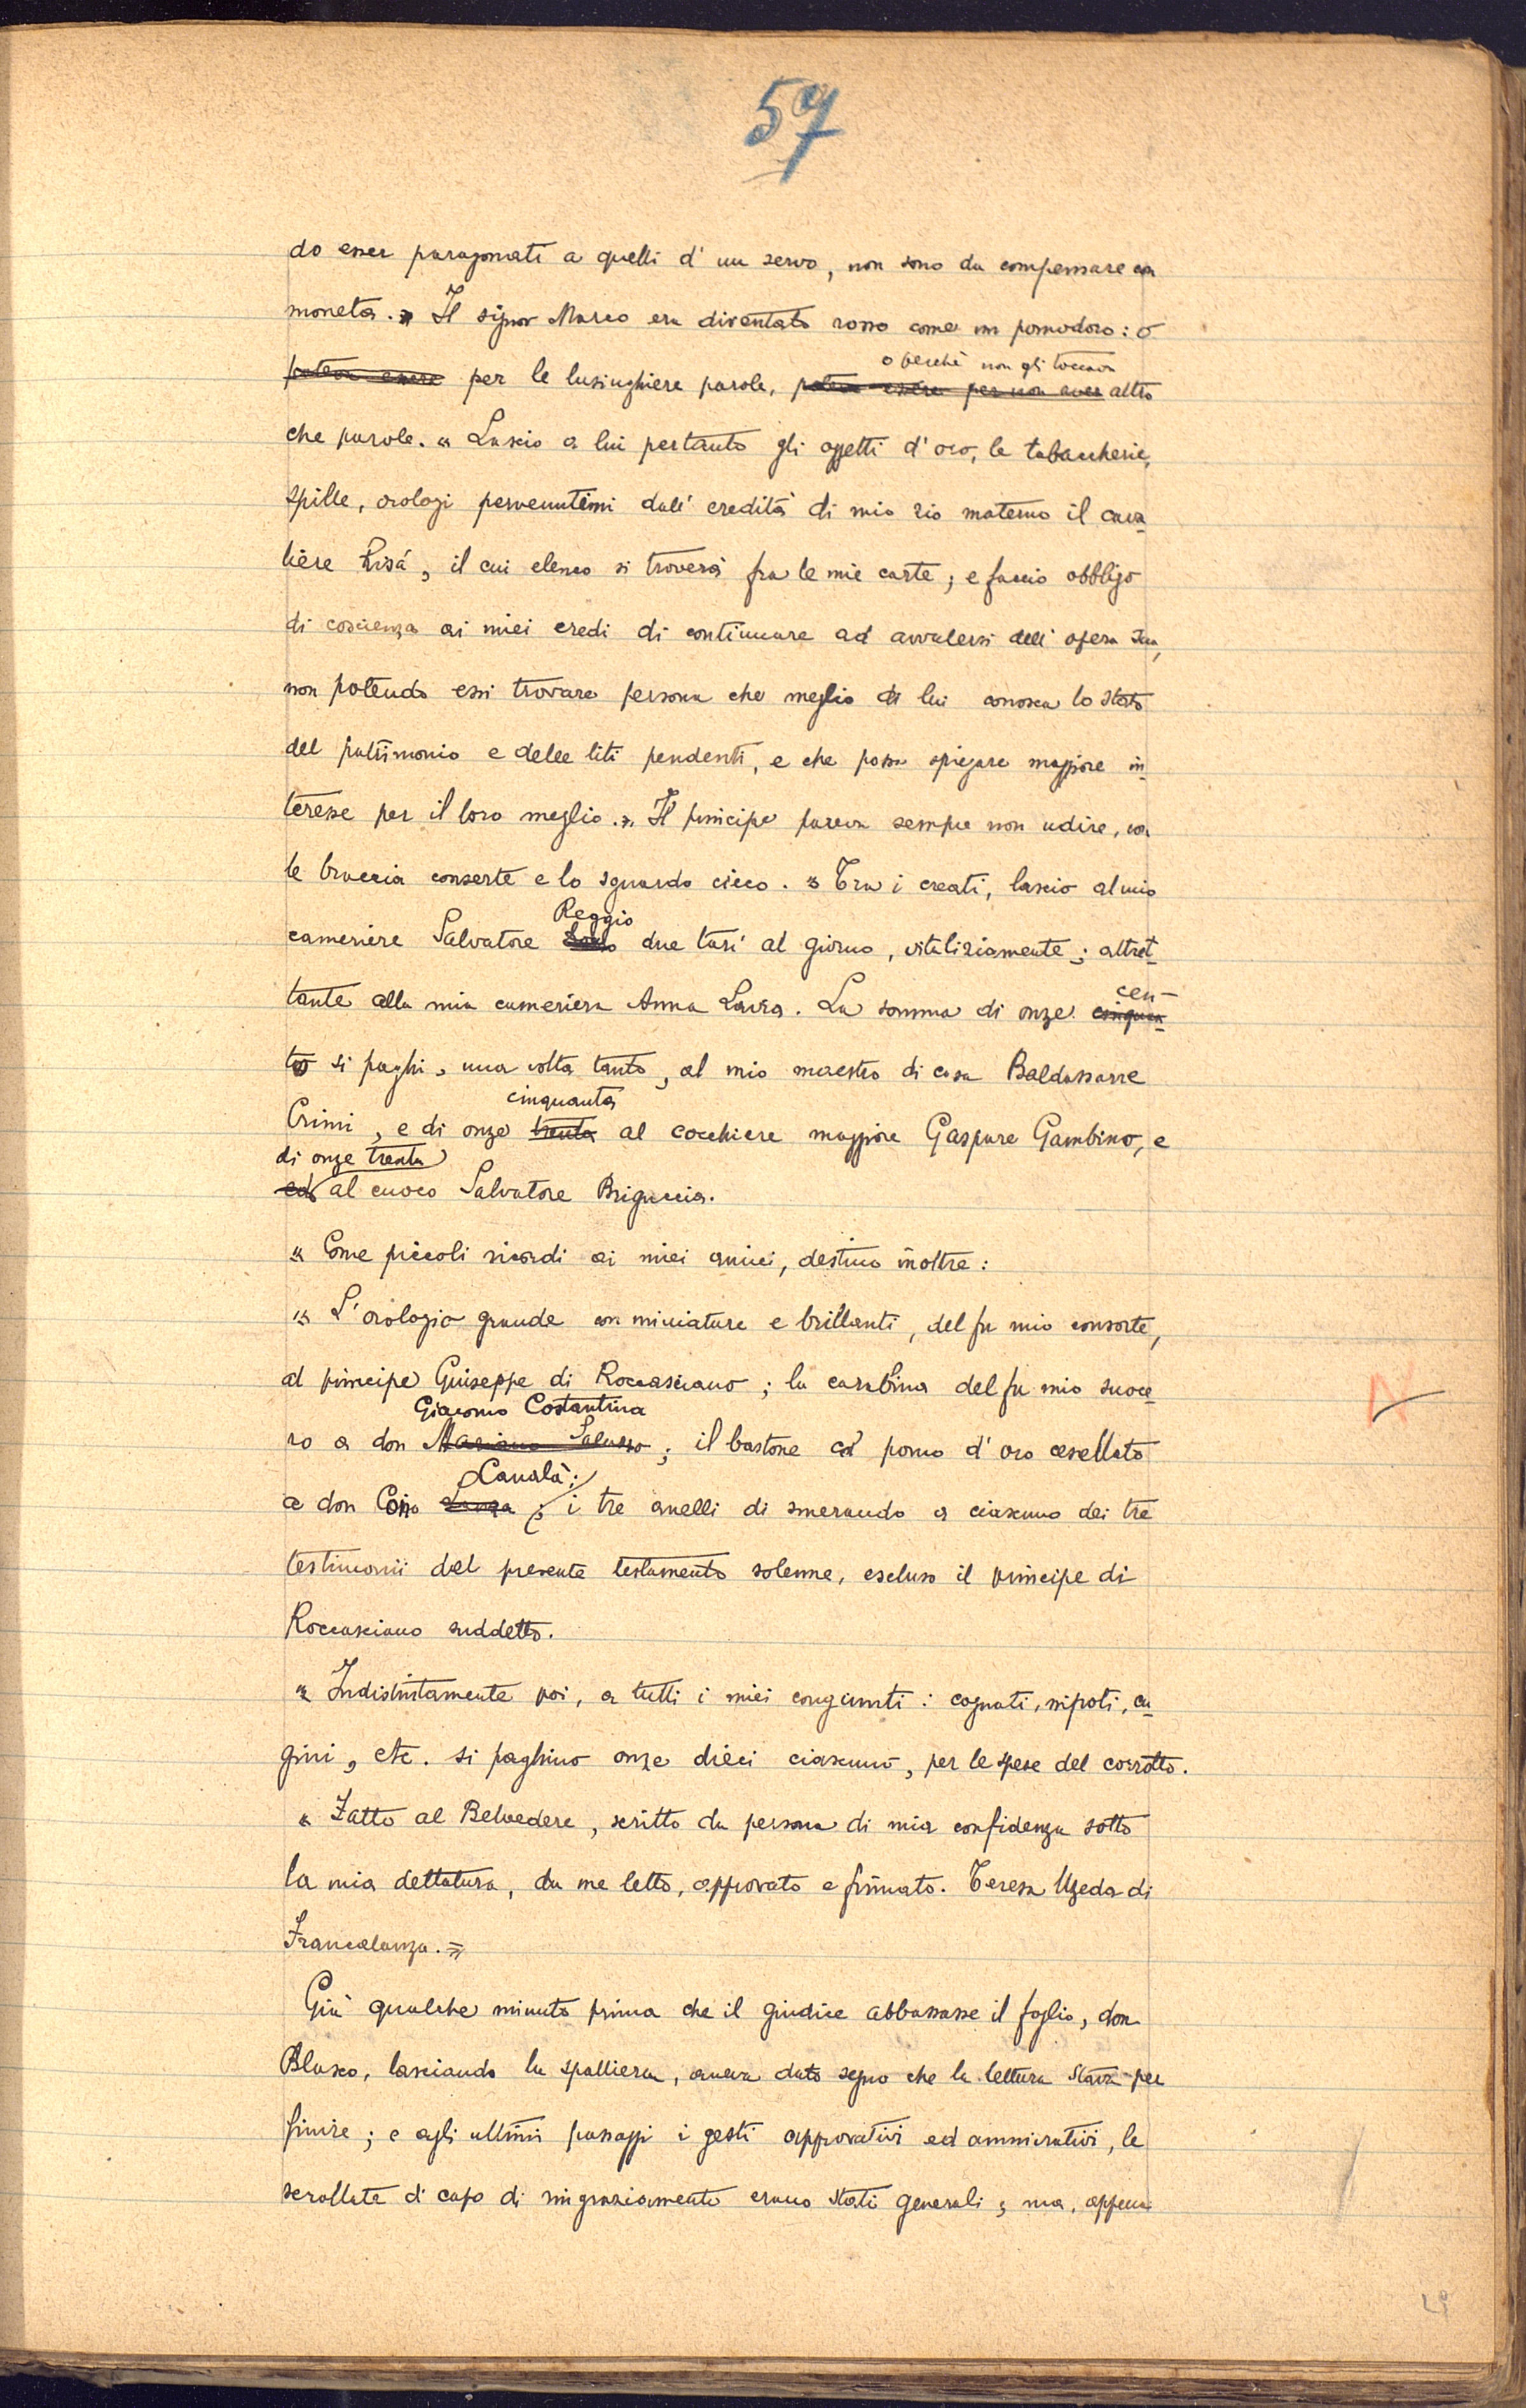 57
do esser paragonati a quelli d'un servo, non sono da compensare con
moneta. » Il signor Marco era diventato rosso come un pomodoro: o
poteva essere per le lusinghiere parole, poteva essere per non aver o perchè non gli toccava altro
che parole. « Lascio a lui pertanto gli oggetti d'oro, le tabacchiere,
spille, orologi pervenutimi dall'eredità di mio zio materno il cava-
liere Risà, il cui elenco si troverà fra le mie carte; e faccio obbligo
di coscienza ai miei eredi di continuare ad avvalersi dell'opera sua,
non potendo essi trovare persona che meglio di lui conosca lo stato
del patrimonio e delle liti pendenti, e che possa spiegare maggiore in-
teresse per il loro meglio. » Il principe pareva sempre non udire, con
le braccia conserte e lo sguardo cieco. « Tra i creati, lascio al mio
cameriere Salvatore Reggio due tarì al giorno, vitaliziamente; altret-
tante alla mia cameriera Anna Lavra. La somma di onze cinquan- cen-
to si paghi, una volta tanto, al mio maestro di casa Baldassarre
Crimi, e di onze trenta cinquanta al cocchiere maggiore Gaspare Gambino, e
ed di onze trenta al cuoco Salvatore Briguccia.
« Come piccoli ricordi ai miei amici, destino inoltre:
« L'orologio grande con miniature e brillanti, del fu mio consorte,
al principe Giuseppe di Roccasciano; la carabina del fu mio suoce-
ro a don Mariano Salazzo Giacomo Costantina; il bastone col pomo d'oro cesellato
a don Cono Lanza Canalà; i tre anelli di smeraldo a ciascuno dei tre
testimonii del presente testamento solenne, escluso il principe di
Roccasciano suddetto.
« Indistintamente poi, a tutti i miei congiunti: cognati, nipoti, cu-
gini, etc. si paghino onze dieci ciascuno, per le spese del corrotto.
« Fatto al Belvedere, scritto da persona di mia confidenza sotto
la mia dettatura, da me letto, approvato e firmato. Teresa Uzeda di
Francalanza. »
Già qualche minuto prima che il giudice abbassasse il foglio, don
Blasco, lasciando la spalliera, aveva dato segno che la lettura stava per
finire; e agli ultimi passaggi i gesti approvativi ed ammirativi, le
scrollate di capo di ringraziamento erano stati generali; ma, appena